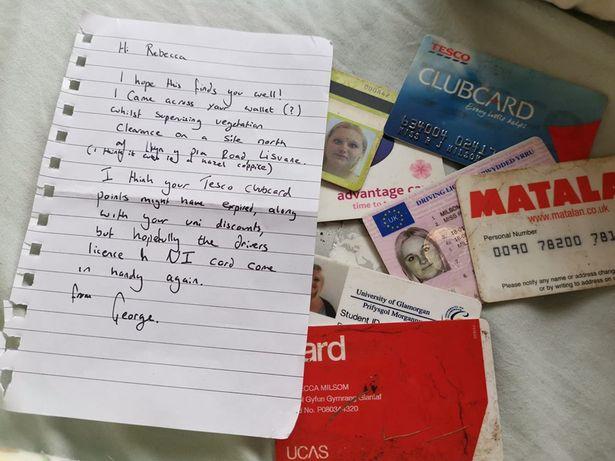 Hi Rebecca
I hope this finds you well!
I came across your wallet (?)
whilst supervising vegetation
clearance on a site north
of Llwyn y Pia Road Lisvane.
(I think it was in a hazel coppice)
I think your Tesco Clubcard
points might have expired, along
with your uni discounts,
but hopefully the drivers
licence & NI card come
in handy again.
from
George.
TESCO
CLUBCARD
Every little helps
634004 02417
MISS R J MILSOM
advantage ca
time to
DRIVING LIC
WYDDED YRRU
UK
MILSOM
MISS
MATALAN
www.matalan.co.uk
Personal Number
0090 78200 781
Please notify any name or address change
or by writing to address on
University of Glamorgan
Prifysgol Morgannwg
Student ID
ard
ECCA MILSOM
l Gyfun Gymraeg Glantaf
l No. P080344320
UCAS